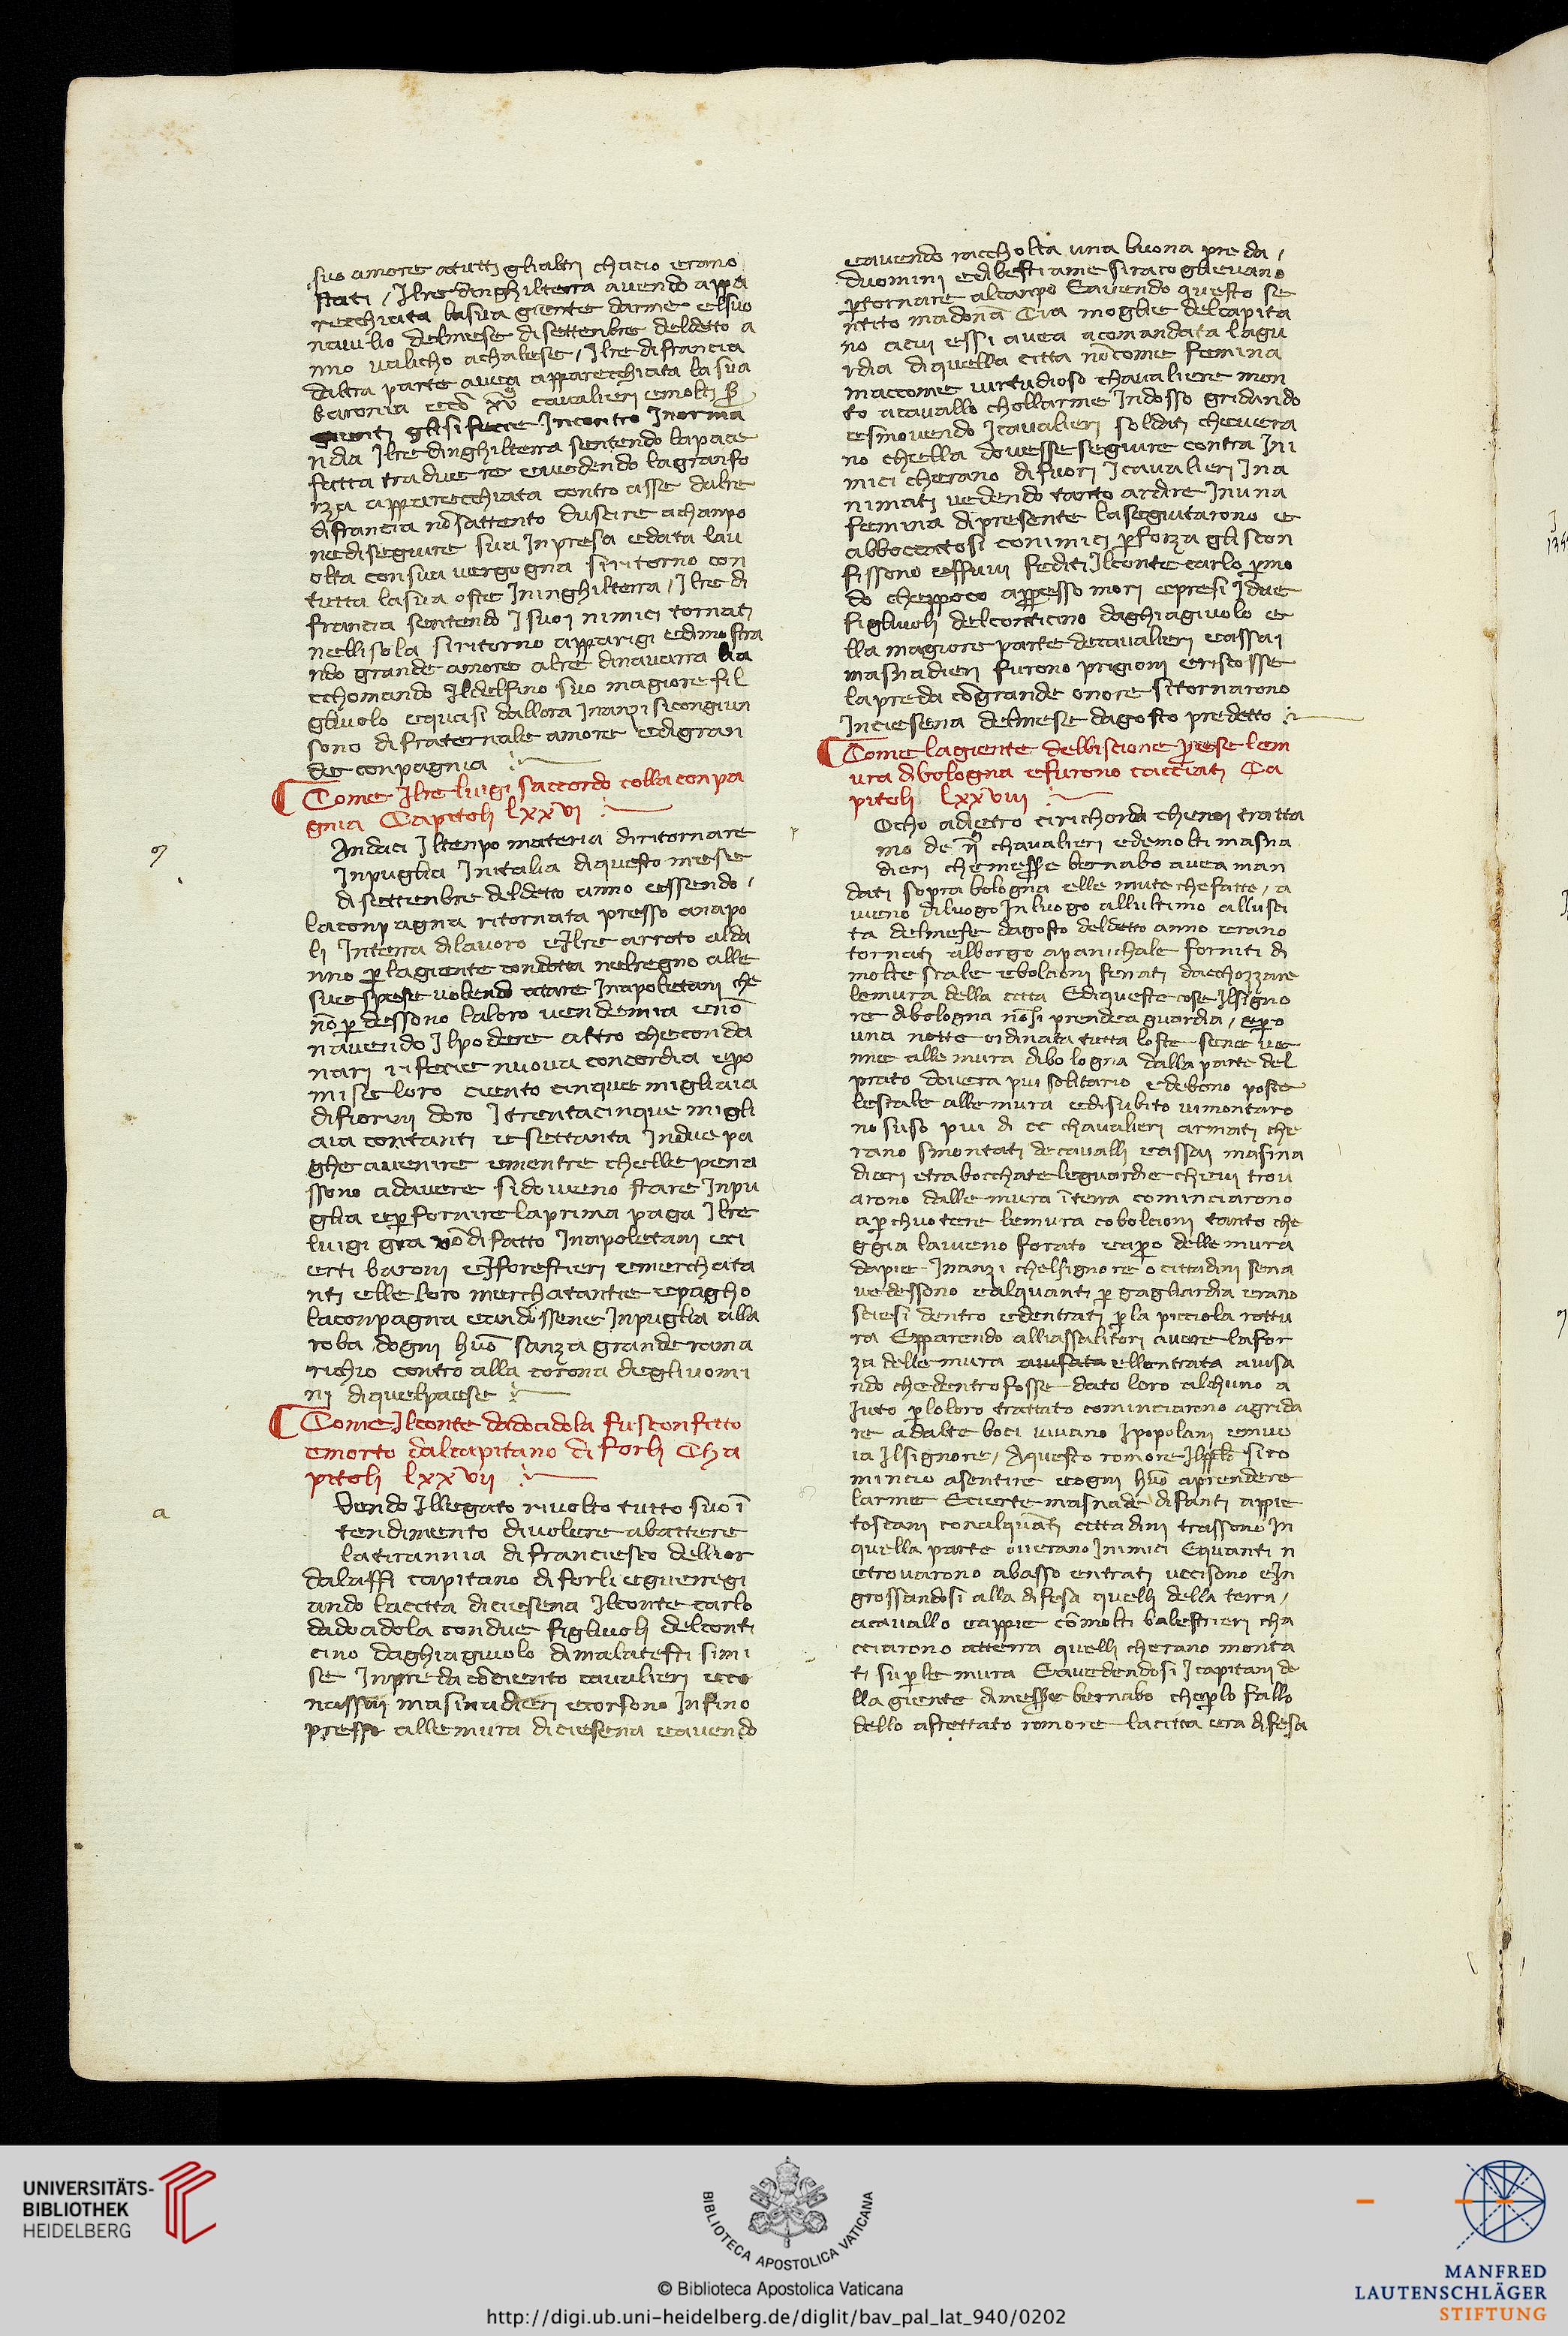 suo amore attutti glialtri chacio erano
stati / Ilre dinghilterra avendo appa
recchiata lasua giente darme elsuo
navilio delmese disettenbre deldetto a
nno valicho achalese / Ilre difrancia
daltra parte avea apparecchiata la sua
baronia ecō xvᵐ cavalieri emolti s̄
gienti glisifecie Incontro Inorma
ndia Ilre dinghilterra sentendo lapace
fatta tradue re evedendo lagranfo
rza apparecchiata contro asse dalre
difrancia nōsattento duscire achanpo
nediseguire sua Inpresa edata lau
olta consua vergogna siritorno con
tutta lasua oste Ininghilterra / Ilre di
francia sentendo Isuoi nimici tornati
nellisola siritorno apparigi edimostra
ndo grande amore alre dinavarra lia
cchomando Ildelfino suo magiore fil
gliuolo equasi dallora Inanzi sicongiun
sono difraternale amore edigran
de conpagnia
Come Ilre luigi saccordo colla conpa
gnia Capitoli lxxvi
Andaci Iltenpo materia diritornare
Inpuglia Initalia diquesto mese
disettenbre deldetto anno essendo /
laconpagna ritornata presso anapo
li Interra dilavoro eIlre arroto alda
nno p̄ lagiente condotta nelregno alle
sue spese volendo atare Inapoletani che
nō p̄dessono laloro vendemia enō
navendo Ilpodere altro checonda
nari vi fecie nuova concordia epro
mise loro ciento cinque migliaia
difiorini doro Itrentacinque migli
aia contanti esettanta Indue pa
ghe avenire ementre chelle pena
ssono adavere sidoveno stare Inpu
glia ep̄fornire laprima paga Ilre
luigi gra vō difatto Inapoletani eci
erti baroni eIforestieri emerchata
nti elle loro merchatantie epagho
laconpagna eandossene Inpuglia alla
roba dogni huō sanza grande rama
richio contro alla corona degliuomi
ni diquelpaese
Come Ilconte dadoadola fusconfitto
emorto dalcapitano di forli Cha
pitoli lxxvii
a
Vendo Illegato rivolto tutto suo ī
tendimento divolere abattere
latirannia difranciesco dellior
dalaffi capitano diforli egueregi
ando lacitta diciesena Ilconte carlo
dadoadola condue figliuoli delconti
cino daghiagiuolo dimalatesti simi
se Inpreda cōciento cavalieri ecco
nassai masinadieri ecorsono Infino
presso allemura diciesena eavendo
eavendo raccholta una buona preda /
duomini edibestiame siracoglievano
p̄tornare alcanpo Eavendo questo se
ntito madonā Cia moglie delcapita
no acui essi avea acomandata lagu
rdia diquella citta nōcome femina
maccome virtudioso chavaliere mon
to acavallo chollarme Indosso gridando
esmovendo Icavalieri soldati chevera
no chella dovesse seguire contra Ini
mici cherano difuori Icavalieri Ina
nimati vedendo tanto ardire Inuna
femina dipresente laseguitarono e
abboccatosi conimici p̄forza gliscon
fissono effuvi fediti Ilconte carlo pmo
do cheppoco appresso mori epresi Idue
figliuoli delconticino daghiagiuolo e
lla magiore parte decavalieri eassai
masnadieri furono prigioni eriscosse
lapreda cōgrande onore sitornarono
Inciesena delmese dagosto predetto
Come lagiente delbiscione prese lem
ura dibologna efurono cacciati Ca
pitoli lxxviii
Ocho adietro cirichorda chenoi tratta
mo de chavalieri edemolti masna
dieri chemess̄e bernabo avea man
dati sopra bologna elle mute chefatte / a
uieno diluogo Inluogo allultimo allusci
ta delmese dagosto deldetto anno erano
tornati alborgo apanichale forniti di
molte scale ebolcioni ferrati dacchozzare
lemura della citta Ediqueste cose Ilsigno
re dibologna nōsi prendea guardia / epo
una notte ordinata tutta loste sene ve
nne alle mura dibologna dalla parte del
prato dovera piu solitario edebono poste
lescale allemura edisubito vimontaro
no suso piu di cc chavalieri armati che
rano smontati decavalli eassai masina
dieri etrabocchate leguardie chevi trov
arono dalle mura īterra cominciarono
ap̄chuotere lemura cobolcioni tanto che
ggia lavieno forato eapo delle mura
dapie Inanzi chelsignore o cittadini sena
vedessono ealquanti p̄ gagliardia erano
sciesi dentro edentrati p̄ la picciola rottu
ra Epparendo alliassalitori avere lafor
za delle mura avisata ellentrata avisa
ndo chedentro fosse dato loro alchuno a
Iuto p̄ loloro trattato cominciarono agrida
re adalte boci vivano Ipopolani emuo
ia Ilsignore / Aquesto romore Ilpplo sico
mincio asentire eogni huō aprendere
larme Ecierte masnade difanti appie
toscani conalquāti cittadini trassono In
quella parte overano Inimici Equanti n
etrovarono abasso entrati uccisono eIn
grossandosi alla difesa quelli della terra /
acavallo eappie cōmolti balestrieri cha
cciarono atterra quelli cherano monta
ti sup̄le mura Eavedendosi Icapitani de
lla giente dimess̄e bernabo chep̄lo fallo
dello affrettato romore lacitta era difesa
UNIVERSITÄTS-
BIBLIOTHEK
HEIDELBERG
BIBLIOTECA APOSTOLICA VATICANA
© Biblioteca Apostolica Vaticana
http://digi.ub.uni-heidelberg.de/diglit/bav_pal_lat_940/0202
MANFRED
LAUTENSCHLÄGER
STIFTUNG